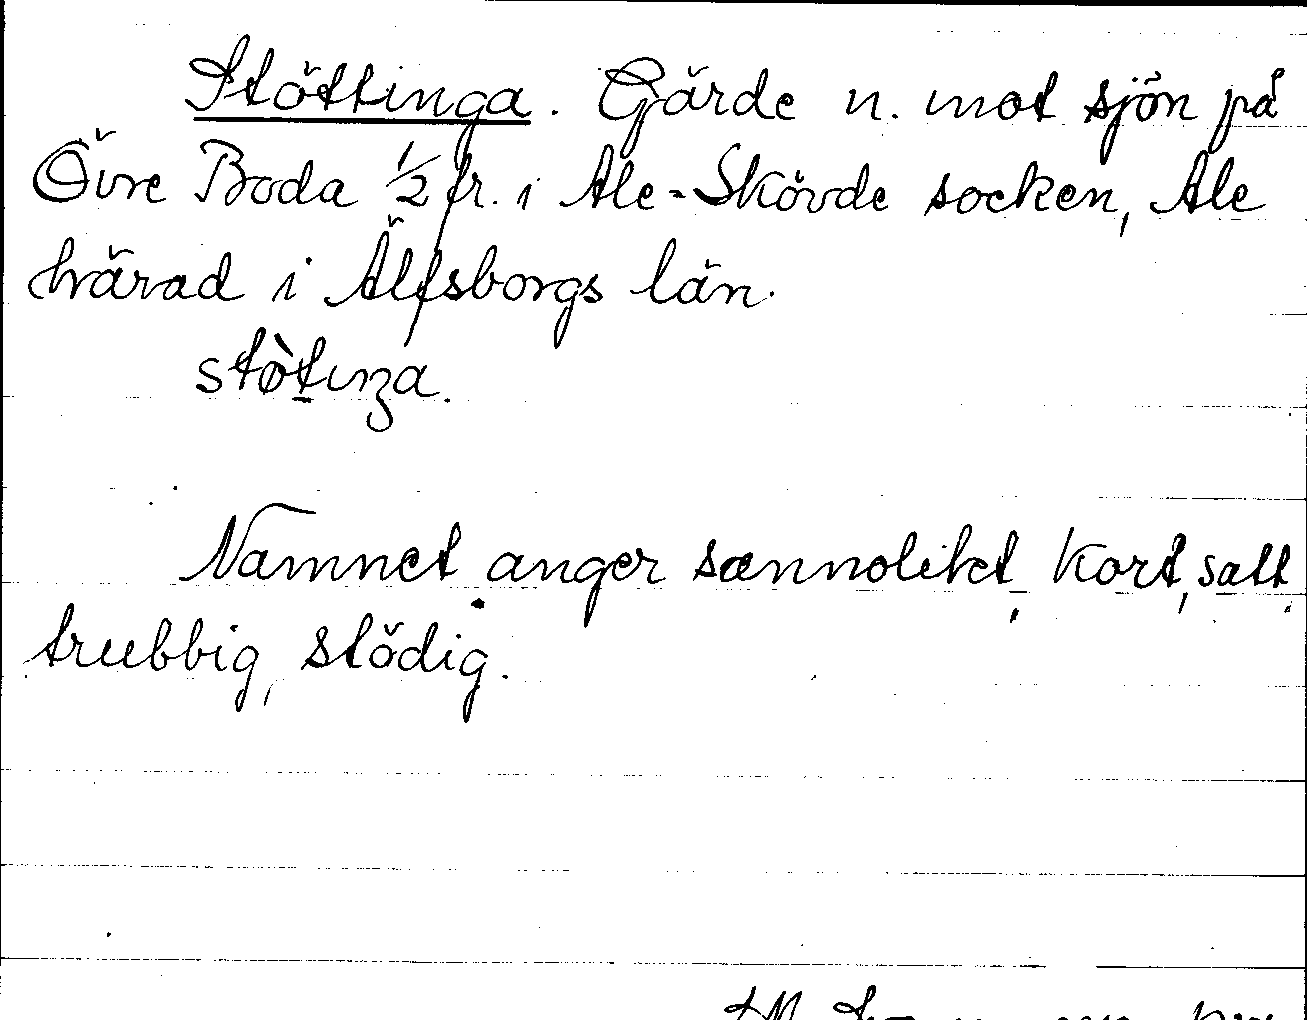 Stöttinga. Gärde n. mot sjön på
Övre Boda 1/2 fr. i Ale-Skövde socken, Ale
härad i Älfsborgs län.
stø̀tıŋa.
Namnet anger sannolikt, kort, satt,
trubbig, stödig.